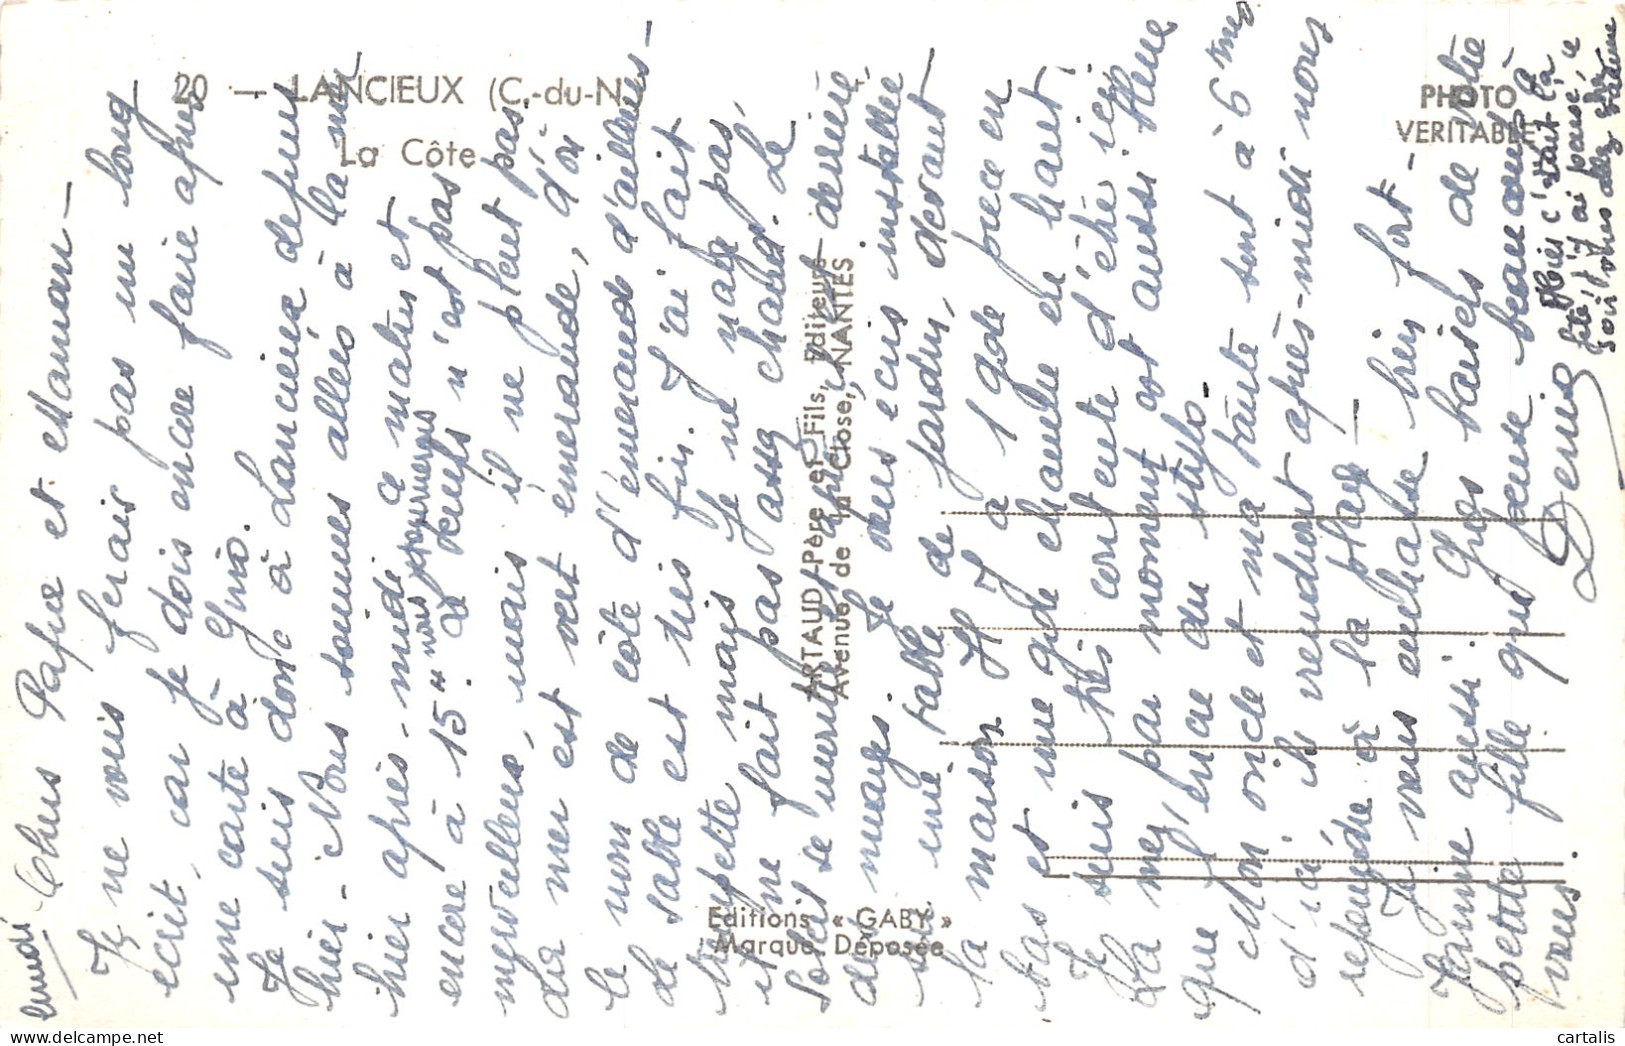 20 — LANCIEUX (C.-du-N.)
La Côte
PHOTO
VERITABLE
ARTAUD Père et Fils, Editeurs
Avenue de la Close, NANTES
Editions « GABY »
Marque Déposée
Lundi
Chers Papa et Maman —
Je ne vous ferais pas un long
écrit, car je dois encore faire après
une carte à Guiô.
Je suis donc à Lancieux depuis
hier. Nous sommes allés à la mer
hier après-midi ce matin et
encore à 15" nous
merveilleux, mais il ne pleut pas.
La mer est vert émeraude, d'où
le nom de côte d'émeraude d'ailleurs —
Le sable est très fin. J'ai fait
trempette mais je ne nage pas,
il ne fait pas assez chaud. Le
Soleil se meurt derrière
des nuages. Je vous écris installée
sur une table de jardin, devant
la maison. Il y a 1 gde pièce en
bas et une gde chambre en haut.
Je suis très contente d'être ici,
La mer par moment est aussi bleue
que l'encre du stylo.
Mon oncle et ma tante sont à 6 kms
d'ici, ils viendront après-midi nous
rejoindre à la plage —
Je vous embrasse bien fort —
Jeanne aussi. Gros baisers de votre
petite fille qui pense beaucoup à
vous.
Denise
Hier c'était la
fête, j'ai pensé, à